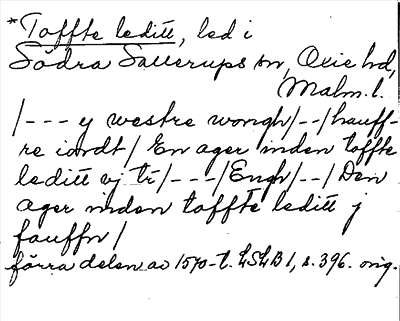 *Toffte leditt, led i
Södra Sallerups sn, Oxie hd,
Malm. l.
/--- y westre wongh/--/hauff-
re iordt/ En ager inden toffte
leditt vj tr/---/Engh/--/Den
ager inden toffte leditt j
fauffn/
förra delen av 1570-t. LSLB 1, s. 396. orig.